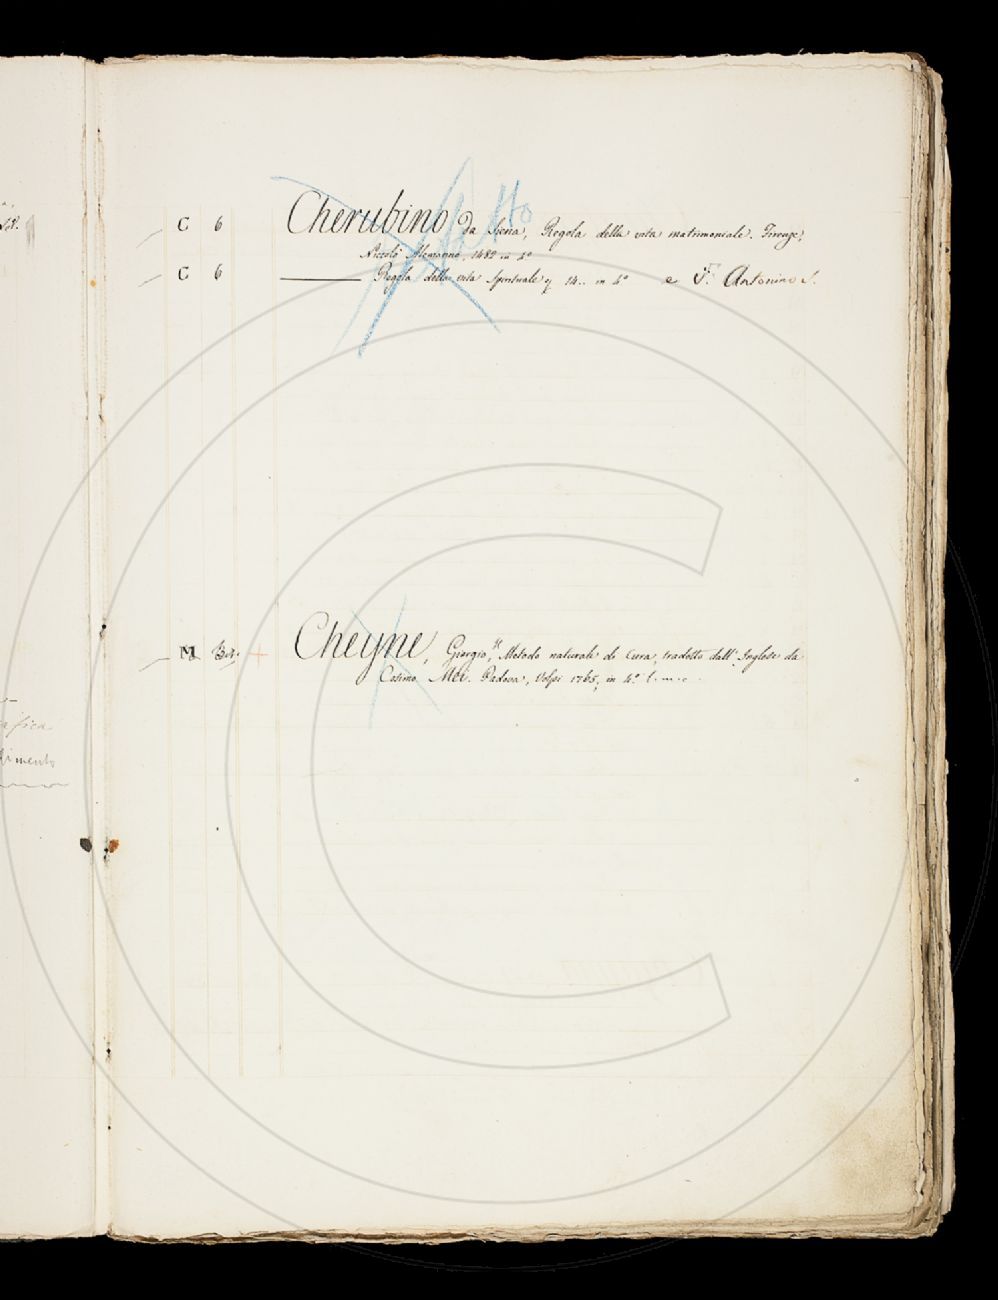 C 6 Cherubino da Siena, Regola della vita matrimoniale. Firenze,
Niccolò Alemanno, 1482 in 4º
C 6 ——— Regola della vita Spirituale 14.. in 4º e V. Antonino S.
M Cheyne, Giorgio, Metodo naturale di Cura, tradotto dall'Inglese da
Cosimo Mei. Padova, Volpi 1765, in 4º
afica
dimento